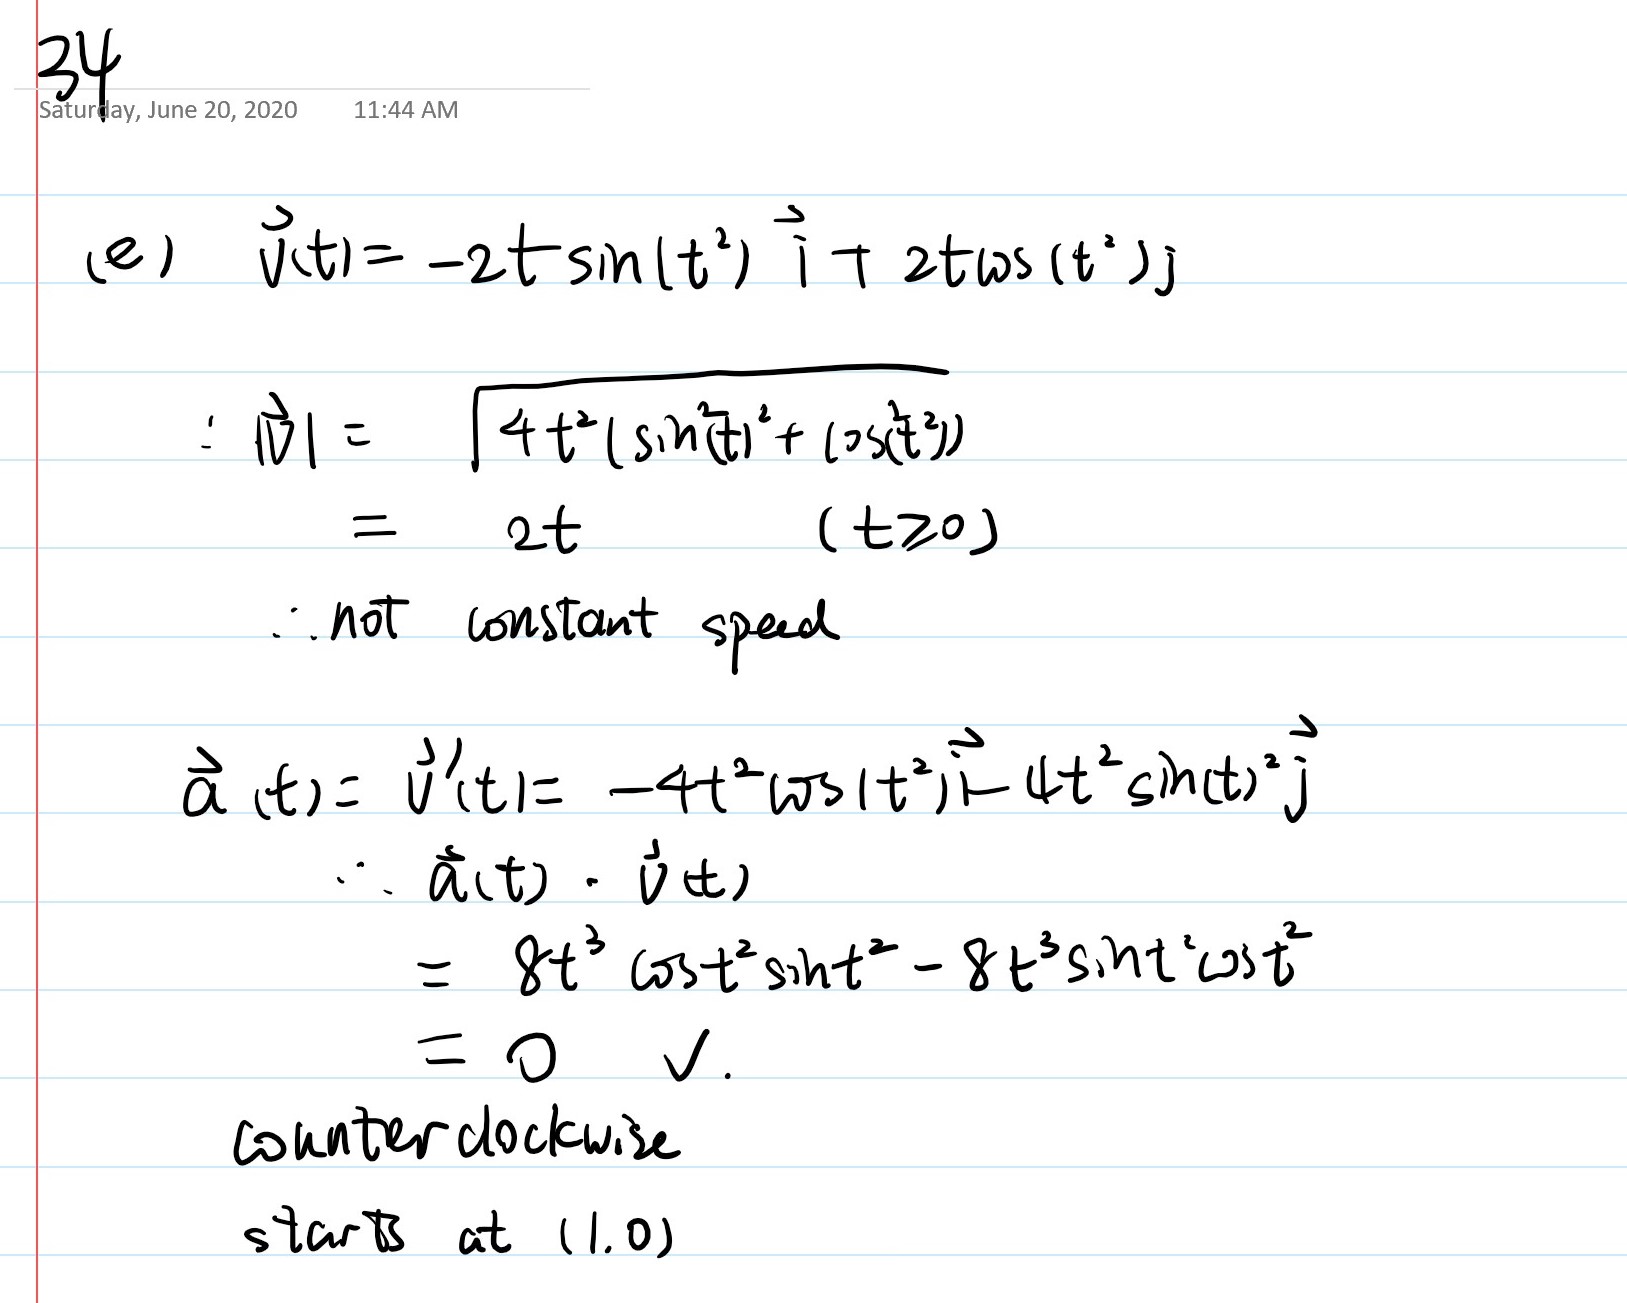 34
Saturday, June 20, 2020 11:44 AM
(e) v⃗(t) = -2t sin(t²) i⃗ + 2t cos(t²) j
∴ |v⃗| = √(4t²(sin²(t)² + cos²(t²)))
= 2t (t≥0)
∴ not constant speed
a⃗(t) = v⃗'(t) = -4t² cos(t²) i⃗ - 4t² sin(t)² j⃗
∴ a⃗(t) · v⃗(t)
= 8t³ cost² sint² - 8t³ sint² cost²
= 0 ✓.
counterclockwise
starts at (1.0)